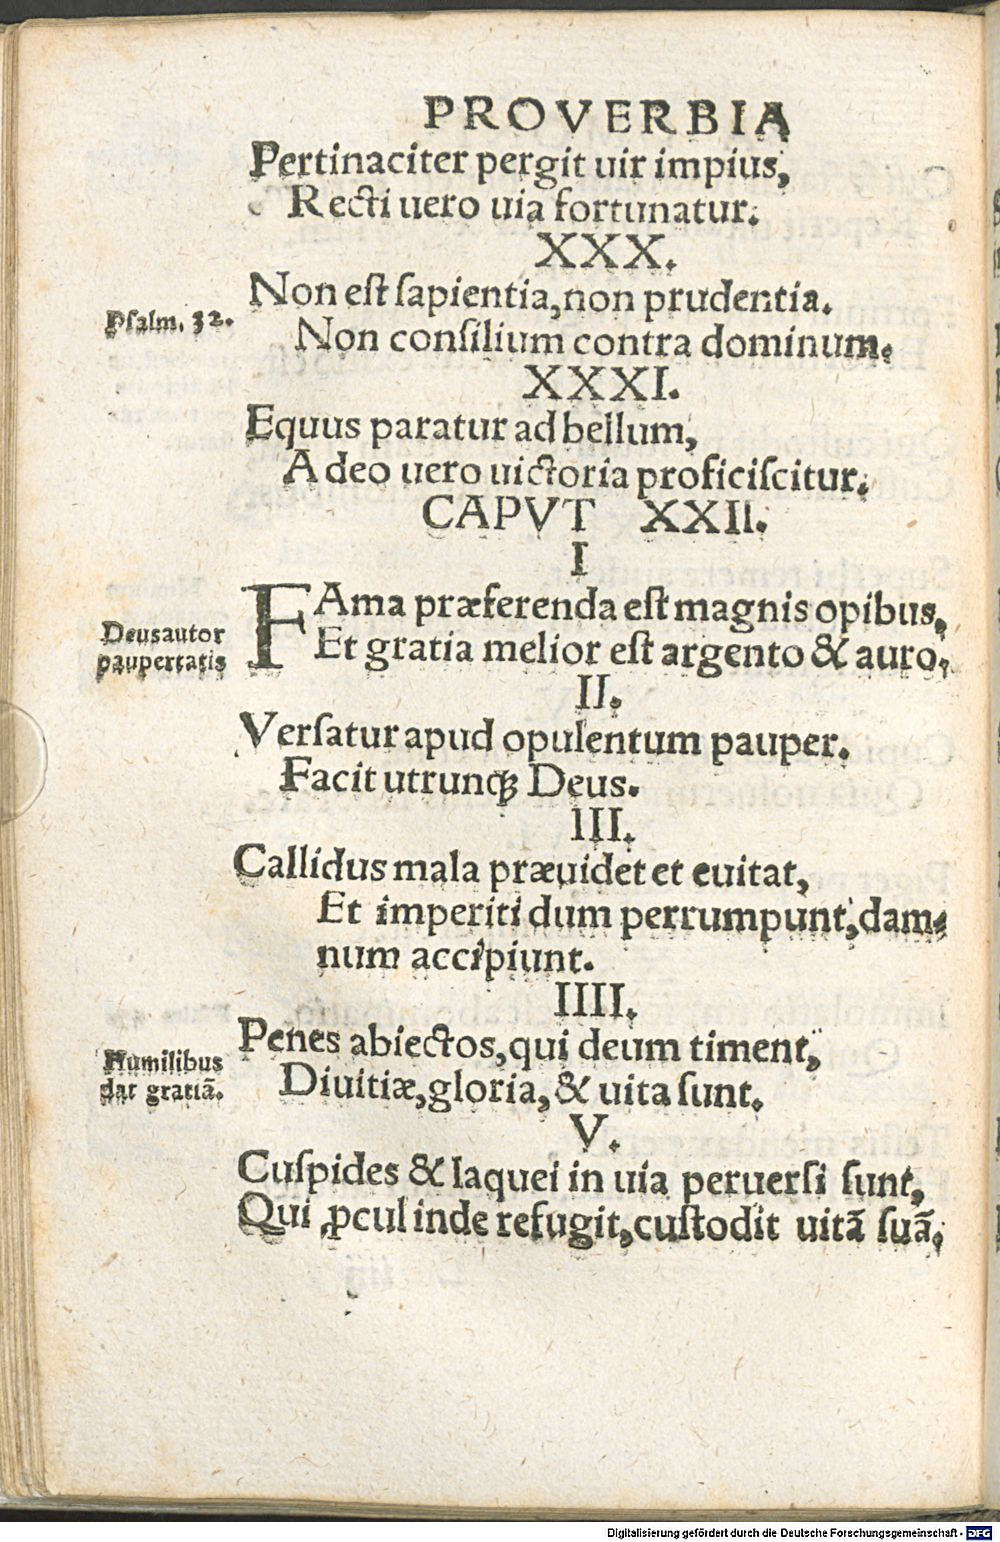 PROVERBIA
Pertinaciter pergit uir impius,
Recti uero uia fortunatur.
XXX.
Non est sapientia, non prudentia.
Psalm. 32.
Non consilium contra dominum.
XXXI.
Equus paratur ad bellum,
A deo uero uictoria proficiscitur.
CAPVT XXII.
I
FAma præferenda est magnis opibus,
Et gratia melior est argento & auro.
Deus autor
paupertatis
II.
Versatur apud opulentum pauper.
Facit utrunqꝫ Deus.
III.
Callidus mala præuidet et euitat,
Et imperiti dum perrumpunt, dam-
num accipiunt.
IIII.
Penes abiectos, qui deum timent,
Diuitiæ, gloria, & uita sunt.
Humilibus
dat gratiã.
V.
Cuspides & laquei in uia peruersi sunt,
Qui ꝓcul inde refugit, custodit uitã suã.
Digitalisierung gefördert durch die Deutsche Forschungsgemeinschaft - DFG